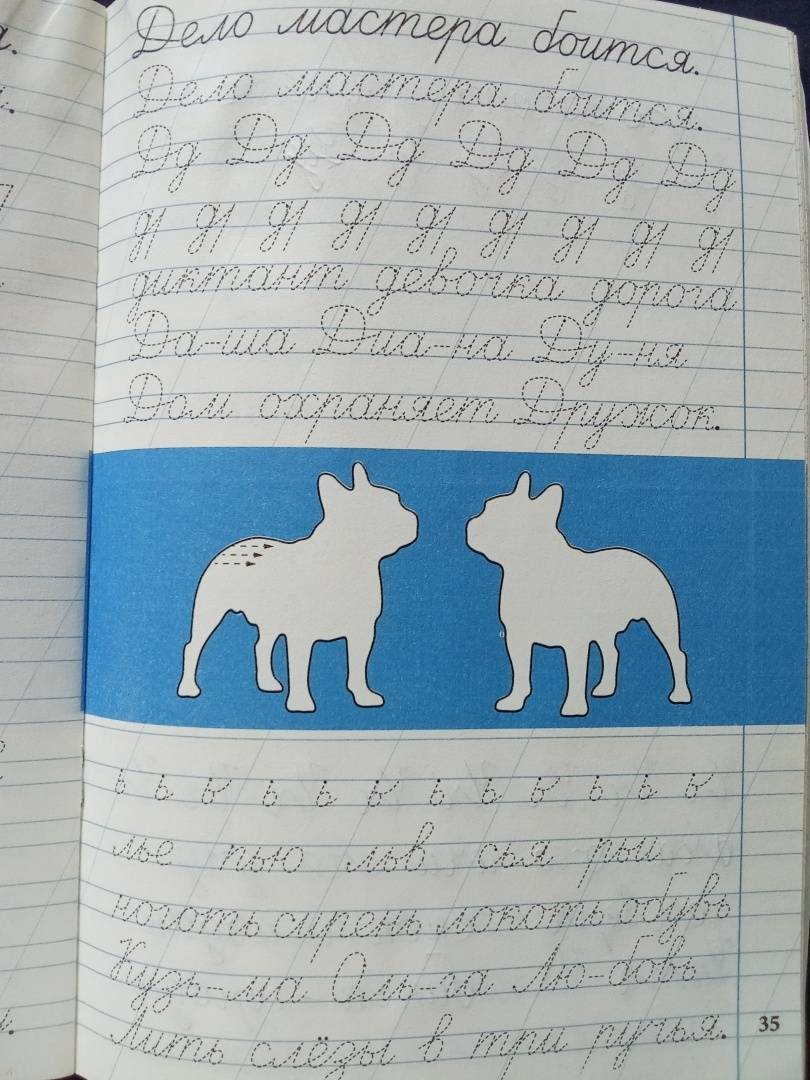 Дело мастера боится.
Дело мастера боится.
Дд Дд Дд Дд Дд Дд
д д д д д д д д д
диктант девочка дорога
Да-ша Диа-на Ду-ня
Дом охраняет Дружок.
ь ь ь ь ь ь ь ь ь ь ь
лье пью льв сья рьи
ноготь сирень локоть обувь
Кузь-ма Оль-га Лю-бовь
Лить слёзы в три ручья.
35